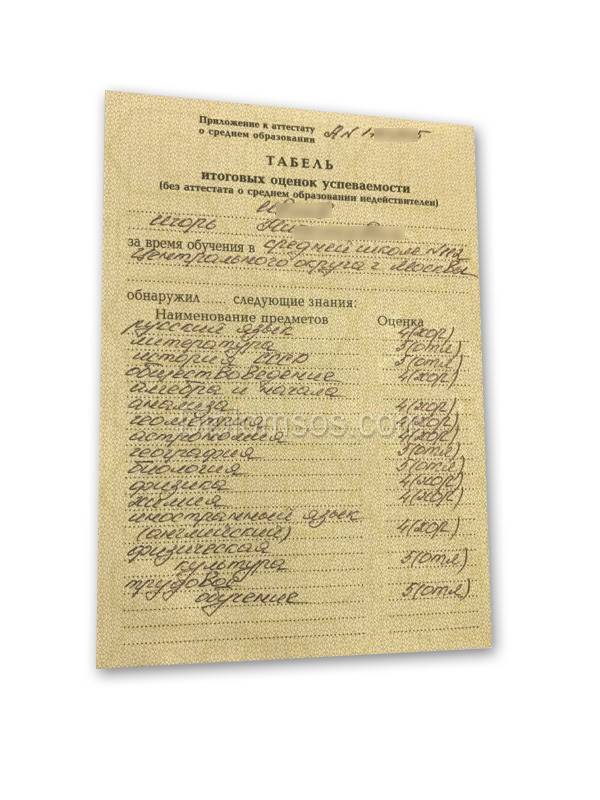 Приложение к аттестату
о среднем образовании
ТАБЕЛЬ
итоговых оценок успеваемости
(без аттестата о среднем образовании недействителен)
Игорь
за время обучения в средней школе №112
Центрального округа г. Москвы
обнаружил ...... следующие знания:
Наименование предметов Оценка
русский язык 4(хор)
литература 5(отл)
история СССР 5(отл)
обществоведение 4(хор)
алгебра и начала
анализа 4(хор)
геометрия 4(хор)
астрономия 4(хор)
география 5(отл)
биология 5(отл)
физика 4(хор)
химия 4(хор)
иностранный язык
(английский) 4(хор)
физическая
культура 5(отл)
трудовое
обучение 5(отл)